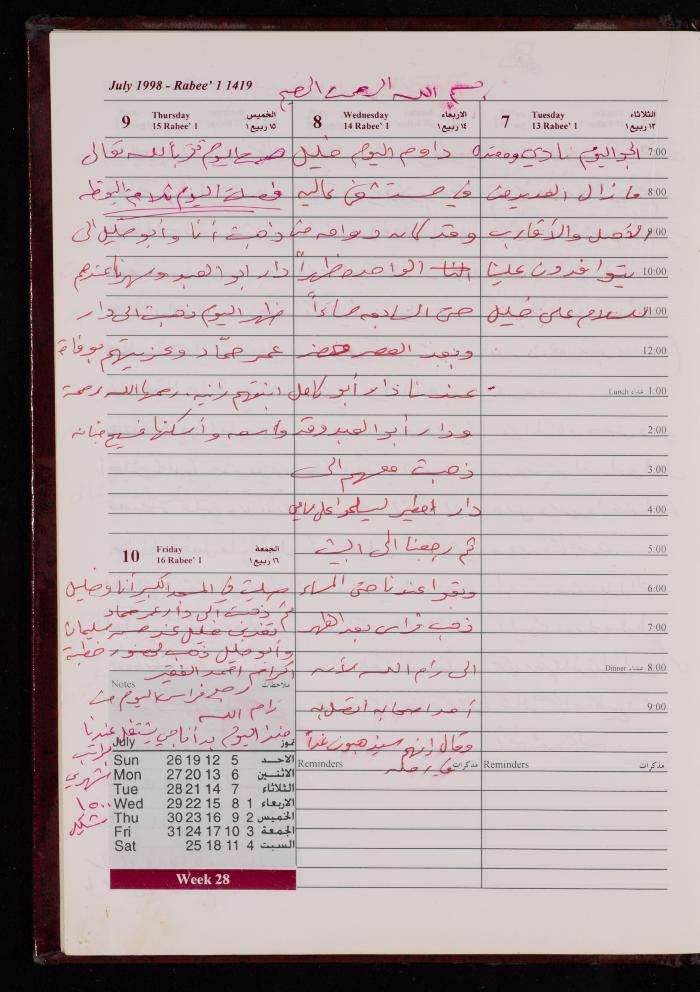 July 1998 - Rabee' 1 1419
بسم الله الرحمن الرحيم
7 Tuesday 13 Rabee' 1 الثلاثاء ١٣ ربيع ١
7:00 الجو اليوم نادي ومعتدل
8:00 ما زال العديد من
9:00 الأهل والأقارب
10:00 يتوافدون علينا
11:00 للسلام على خليل
12:00
Lunch غداء 1:00
2:00
3:00
4:00
5:00
6:00
7:00
Dinner عشاء 8:00
9:00
Reminders مذكرات
8 Wednesday 14 Rabee' 1 الاربعاء ١٤ ربيع ١
داوم اليوم خليل
في مستشفى عاليه
وقد كان دوامه من
الواحده ظهراً
حتى السابعه مساءاً
وبعد العصر حضر
عندنا دار أبو كامل
ودار أبو العبد وقد
ذهبت معهم الى
دار مطير ليسلموا على سامي
ثم رجعنا الى البيت
وبقوا عندنا حتى المساء
ذهب فراس بعد الظهر
الى رام الله لأنه
أحد أصحابه اتصل به
وقال إنهم سيذهبون غداً
Reminders مذكرات
9 Thursday 15 Rabee' 1 الخميس ١٥ ربيع ١
صمت اليوم تقرباً لله تعالى
فصلت اليوم ثلاجة البوظه
ذهبت أنا وأبو خليل الى
دار ابو العبد وسهرنا عندهم
ظهر اليوم ذهبت الى دار
عمر حمّاد وعزيتهم بوفاة
ابنتهم رانيه رحمها الله رحمة
واسعه وأسكنها فسيح جنانه
10 Friday 16 Rabee' 1 الجمعة ١٦ ربيع ١
صليت في المسجد الكبير أنا وخليل
ثم ذهبت الى دار عمر حماد
تغدى خليل عند حسن سليمان
وأبو خليل ذهب لحضور خطبة
اكرام احمد الفقير
Notes ملاحظات
رجع فراس اليوم من
رام الله
منذ اليوم بدأ ناجي يشتغل عندنا
براتب
شهري
١٥٠٠
شيكل
July تموز
Sun 26 19 12 5 الاحــد
Mon 27 20 13 6 الاثنـين
Tue 28 21 14 7 الثلاثاء
Wed 29 22 15 8 1 الاربعاء
Thu 30 23 16 9 2 الخميس
Fri 31 24 17 10 3 الجمعة
Sat 25 18 11 4 السبت
Week 28